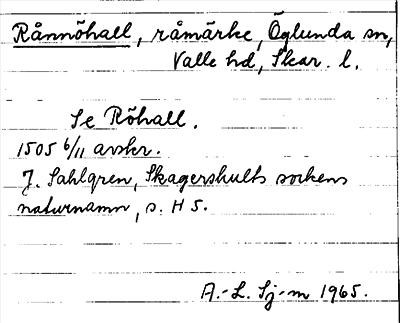 Rånnöhall, råmärke, Öglunda sn,
Valle hd, Skar. l.
Se Röhall.
1505 6/11 avskr.
J. Sahlgren, Skagershults sockens
naturnamn, s. H 5.
A.-L. Sj-m 1965.